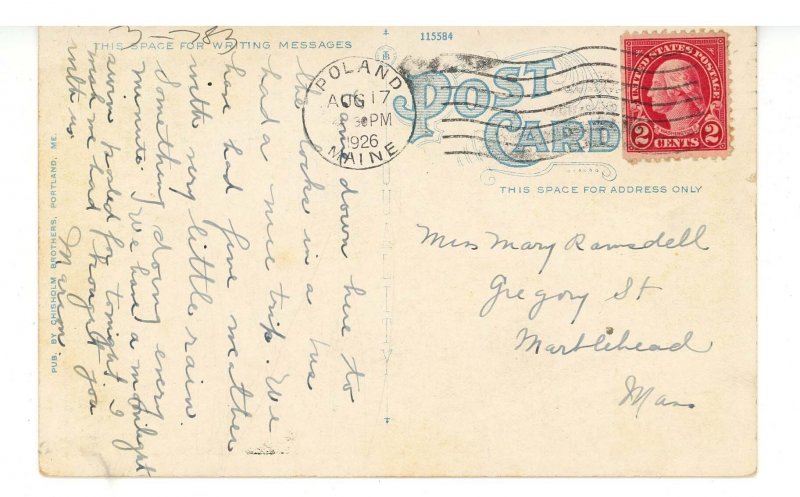 3-783
THIS SPACE FOR WRITING MESSAGES
115584
POST
CARD
THIS SPACE FOR ADDRESS ONLY
POLAND
AUG 17
30PM
1926
MAINE
UNITED STATES POSTAGE
2 CENTS 2
Came down here to
the locks in a bus
had a nice trip. We
have had fine weather
with very little rain.
Something doing every
minute. We have a moonlight
planned for tonight. I
wish we had brought you
with us.
Marion.
Miss Mary Ramsdell
Gregory St
Marblehead
Mass
QUALITY
PUB. BY CHISHOLM BROTHERS, PORTLAND, ME.